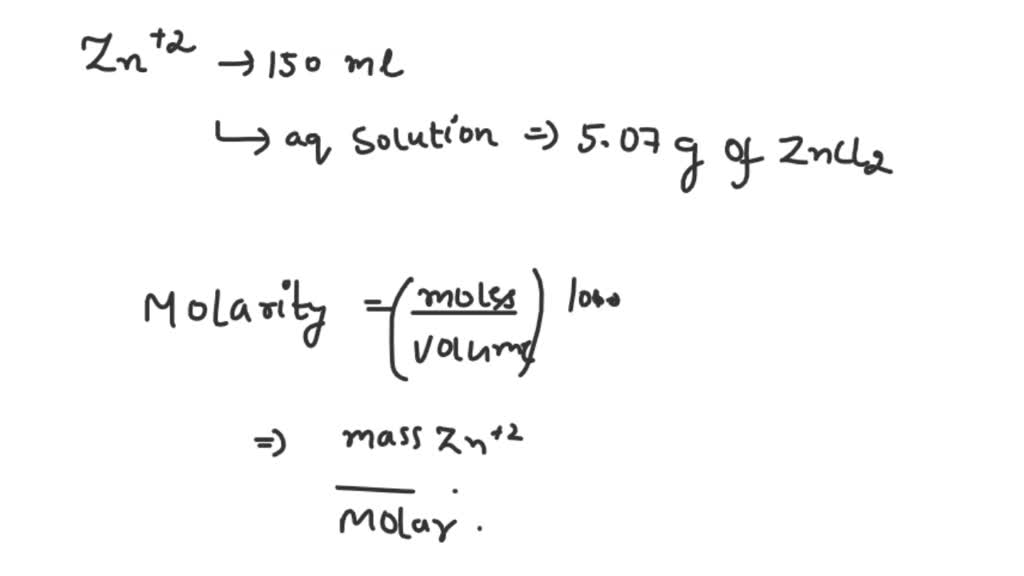 Zn+2 → 150 ml
↳ aq solution ⇒ 5.07 g of ZnCl2
Molarity = (moles / volume) 1000
⇒ mass Zn+2
Molar .